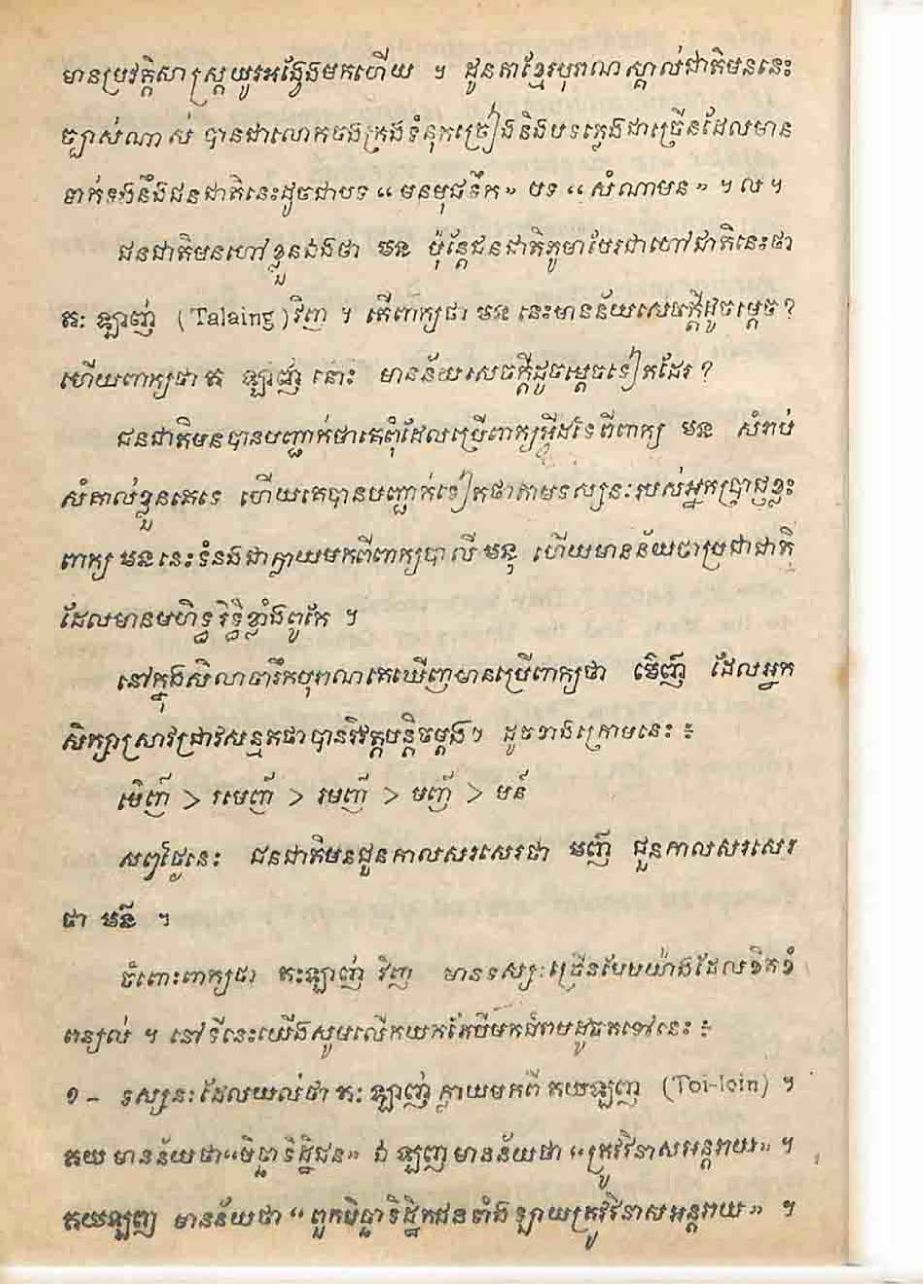 មានប្រវត្តិសាស្ត្រយូរអង្វែងមកហើយ ។ ដូនតាខ្មែរបុរាណស្គាល់ជាតិមននេះ
ច្បាស់ណាស់ បានជាលោកចងក្រងទំនុកច្រៀងនិងបទភ្លេងជាច្រើនដែលមាន
ទាក់ទងនឹងជនជាតិនេះដូចជាបទ “ មនមុជទឹក » បទ “ សំណាមន » ។ ល ។
ជនជាតិមនហៅខ្លួនឯងថា មន ប៉ុន្តែជនជាតិភូមាបែរជាហៅជាតិនេះថា
តៈ ឡាញ់ ( Talaing ) វិញ ។ តើពាក្យថា មន នេះមានន័យសេចក្តីដូចម្តេច ?
ហើយពាក្យថា ត ឡាញ់ នោះ មានន័យសេចក្តីដូចម្តេចទៀតដែរ ?
ជនជាតិមនបានបញ្ជាក់ថាគេពុំដែលប្រើពាក្យអ្វីដទៃពីពាក្យ មន សំរាប់
សំគាល់ខ្លួនគេទេ ហើយគេបានបញ្ជាក់ទៀតថាតាមទស្សនៈរបស់អ្នកប្រាជ្ញខ្លះ
ពាក្យ មន នេះទំនងជាក្លាយមកពីពាក្យបាលី មនុ ហើយមានន័យថាប្រជាជាតិ
ដែលមានមហិទ្ធិរិទ្ធិខ្លាំងពូកែ ។
នៅក្នុងសិលាចារឹកបុរាណគេឃើញមានប្រើពាក្យថា ម៉េញ៍ ដែលអ្នក
សិក្សាស្រាវជ្រាវសន្មតថាបានវិវត្តបន្តិចម្តងៗ ដូចខាងក្រោមនេះ ៖
> រមេញ៍ > រមញ៍ > មញ៍ > មន៍
សព្វថ្ងៃនេះ ជនជាតិមនជួនកាលសរសេរថា មញ៍ ជួនកាលសរសេរ
ថា មន៍ ។
ចំពោះពាក្យថា តៈឡាញ់ វិញ មានទស្សៈច្រើនបែបយ៉ាងដែលខិតខំ
ពន្យល់ ។ នៅទីនេះយើងសូមលើកយកតែបីមកជំរាបដូចតទៅនេះ ៖
១ – ទស្សនៈដែលយល់ថា តៈ ឡាញ់ ក្លាយមកពី តយឡញ (Toi-loin) ។
តយ មានន័យថា“មិច្ឆាទិដ្ឋិជន» ឯ ឡញ មានន័យថា “ត្រូវវិនាសអន្តរាយ» ។
តយឡញ មានន័យថា “ ពួកមិច្ឆាទិដ្ឋិកជនទាំងឡាយត្រូវវិនាសអន្តរាយ» ។